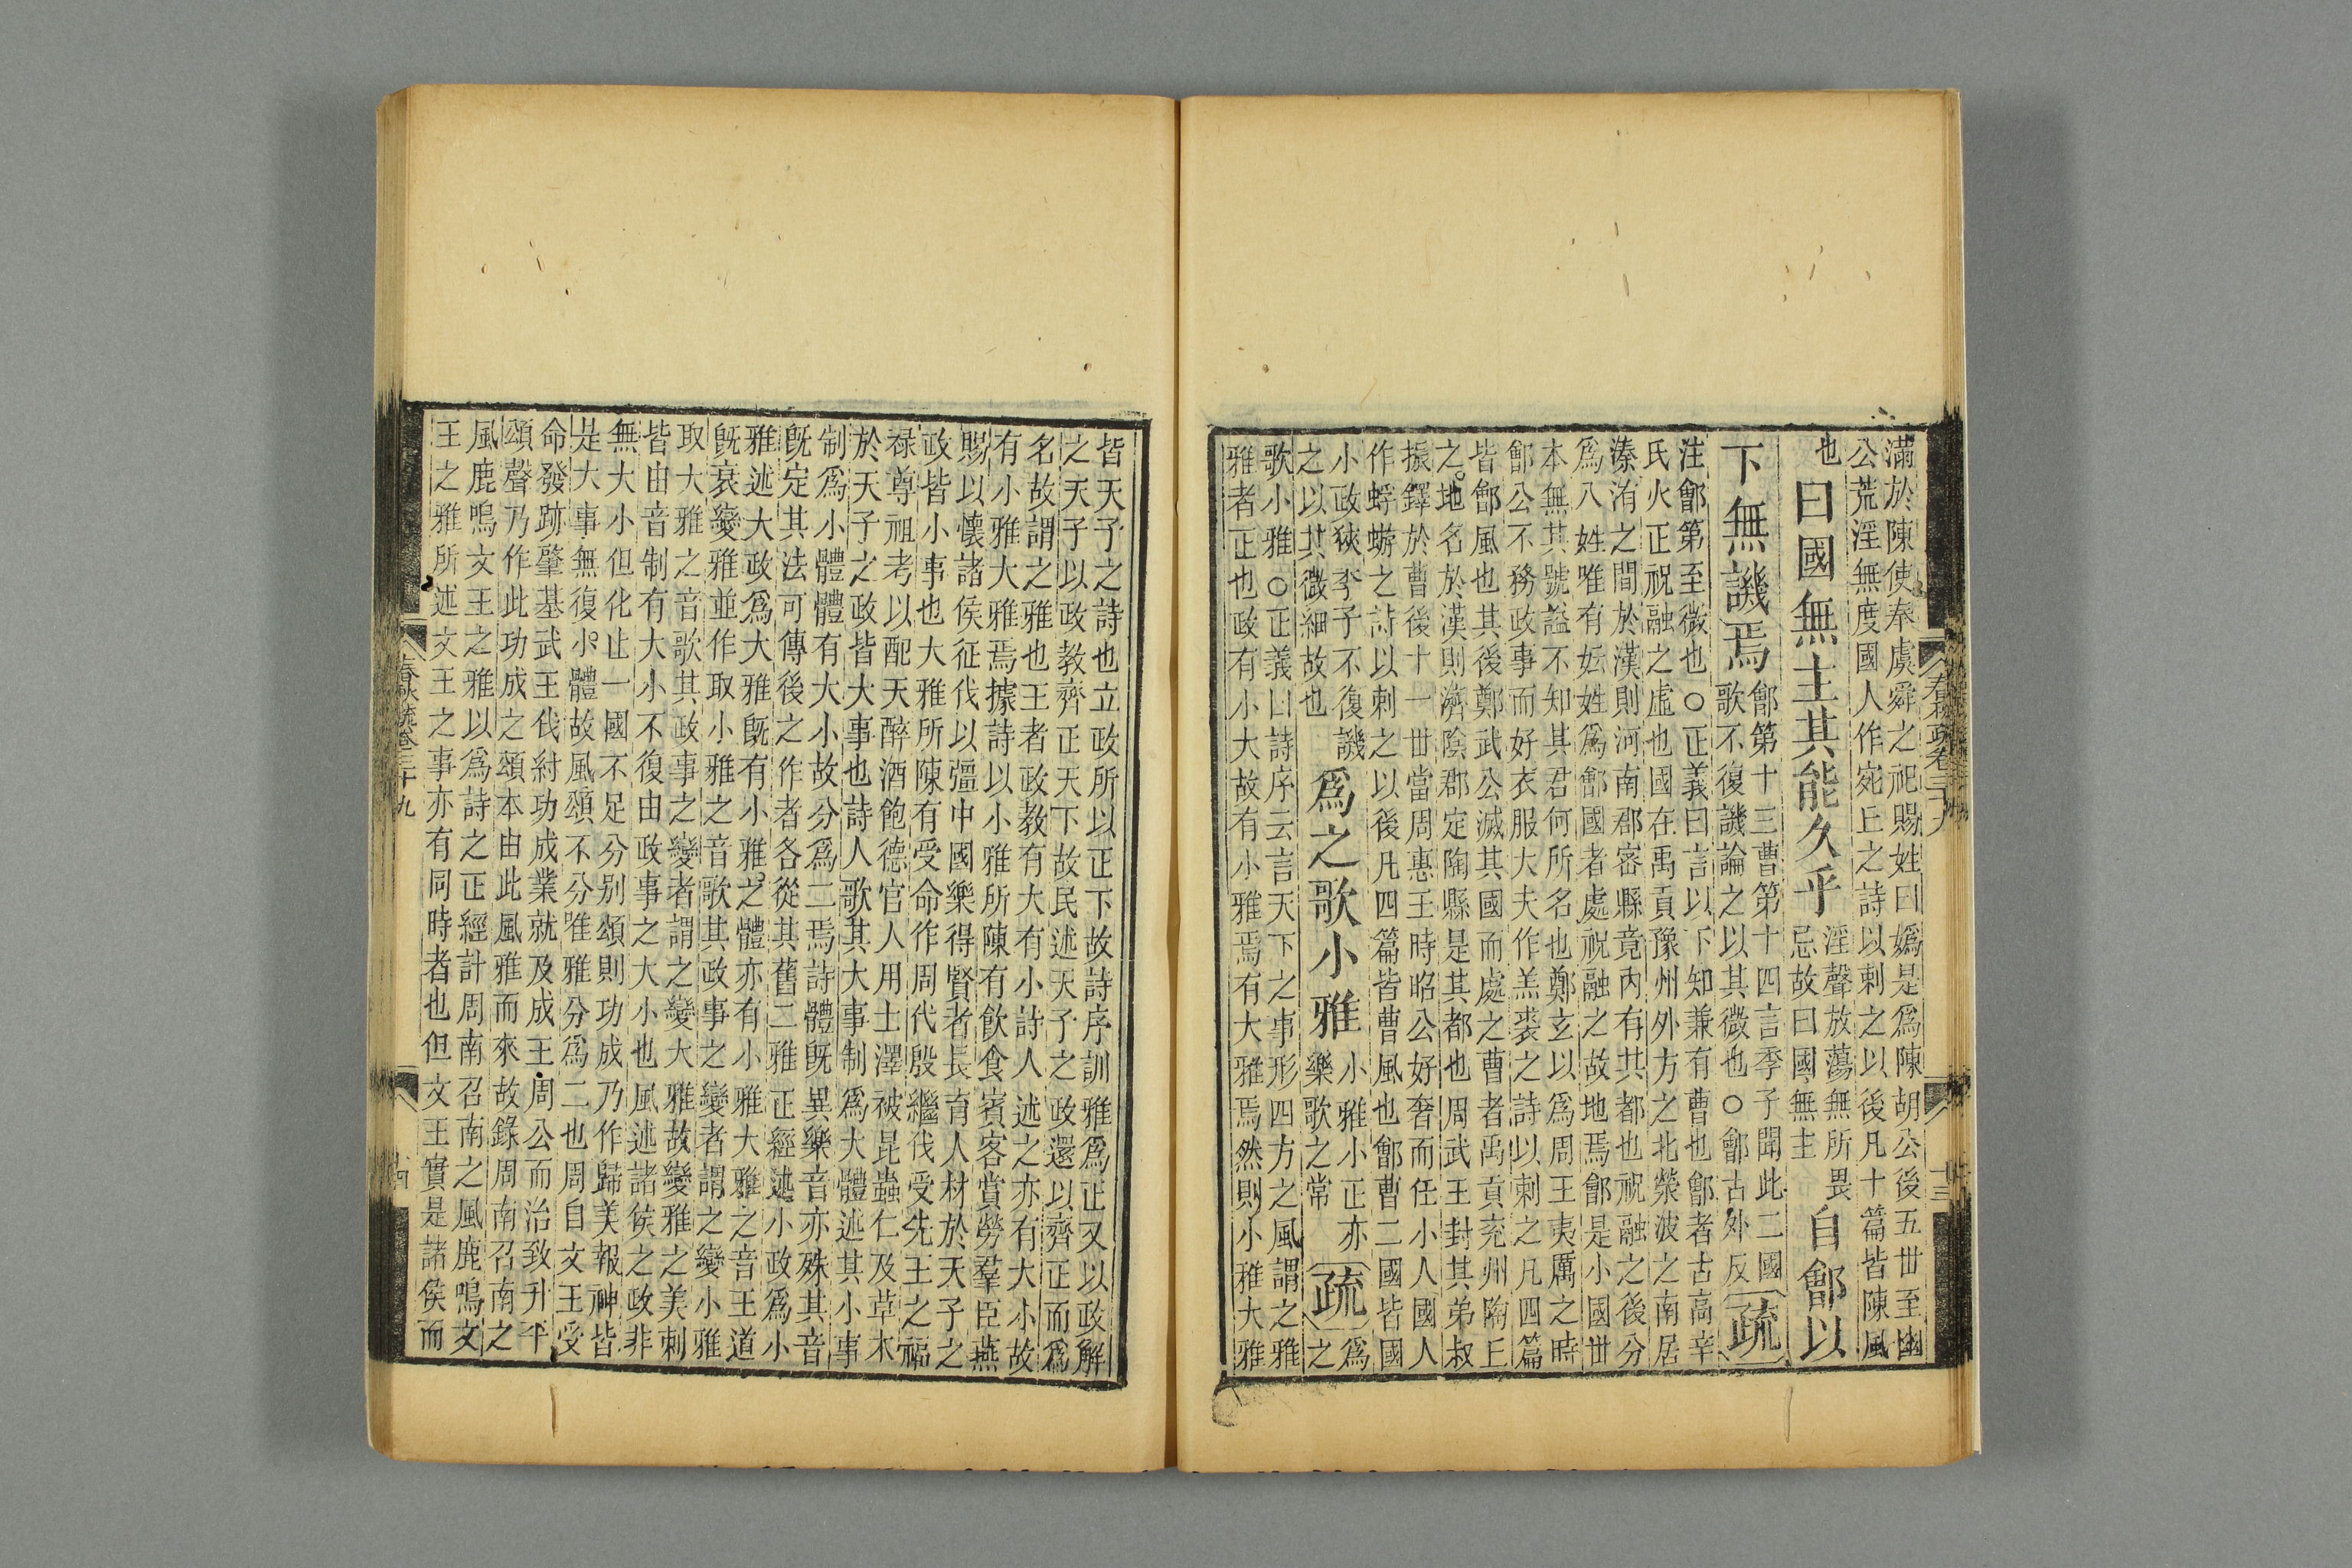 滿於陳使奉虞舜之祀賜姓曰嬀是爲陳胡公後五世至幽
公荒淫無度國人作宛丘之詩以刺之以後凡十篇皆陳風
也曰國無主其能久乎淫聲放蕩無所畏忌故曰國無主自鄶以
下無譏焉鄶第十三曹第十四言季子聞此二國歌不復譏論之以其微也○鄶古外反疏
注鄶第至微也○正義曰言以下知兼有曹也鄶者古高辛
氏火正祝融之虛也國在禹貢豫州外方之北滎波之南居
溱洧之間於漢則河南郡密縣竟內有其都也祝融之後分
爲八姓唯有妘姓爲鄶國者處祝融之故地焉鄶是小國世
本無其號謚不知其君何所名也鄭玄以爲周王夷厲之時
鄶公不務政事而好衣服大夫作羔裘之詩以刺之凡四篇
皆鄶風也其後鄭武公滅其國而處之曹者禹貢兖州陶丘
之地名於漢則濟陰郡定陶縣是其都也周武王封其弟叔
振鐸於曹後十一世當周惠王時昭公好奢而任小人國人
作蜉蝣之詩以刺之以後凡四篇皆曹風也鄶曹二國皆國
小政狹季子不復譏之以其微細故也爲之歌小雅小雅小正亦樂歌之常疏爲之
歌小雅○正義曰詩序云言天下之事形四方之風謂之雅
雅者正也政有小大故有小雅焉有大雅焉然則小雅大雅
春秋疏卷三十九
十三
皆天子之詩也立政所以正下故詩序訓雅爲正又以政解
之天子以政教齊正天下故民述天子之政還以齊正而爲
名故謂之雅也王者政教有大有小詩人述之亦有大小故
有小雅大雅焉據詩以小雅所陳有飲食賓客賞勞羣臣燕
賜以懷諸侯征伐以彊中國樂得賢者長育人材於天子之
政皆小事也大雅所陳有受命作周代殷繼伐受先王之福
祿尊祖考以配天醉酒飽德官人用士澤被昆蟲仁及草木
於天子之政皆大事也詩人歌其大事制爲大體述其小事
制爲小體體有大小故分爲二焉詩體既異樂音亦殊其音
既定其法可傳後之作者各從其舊二雅正經述小政爲小
雅述大政爲大雅既有小雅之體亦有小雅大雅之音王道
既衰變雅並作取小雅之音歌其政事之變者謂之變小雅
取大雅之音歌其政事之變者謂之變大雅故變雅之美刺
皆由音制有大小不復由政事之大小也風述諸侯之政非
無大小但化止一國不足分別頌則功成乃作歸美報神皆
是大事無復小體故風頌不分唯雅分爲二也周自文王受
命發跡肇基武王伐紂功成業就及成王周公而治致升平
頌聲乃作此功成之頌本由此風雅而來故錄周南召南之
風鹿鳴文王之雅以爲詩之正經計周南召南之風鹿鳴文
王之雅所述文王之事亦有同時者也但文王實是諸侯而
春秋疏卷三十九
十四